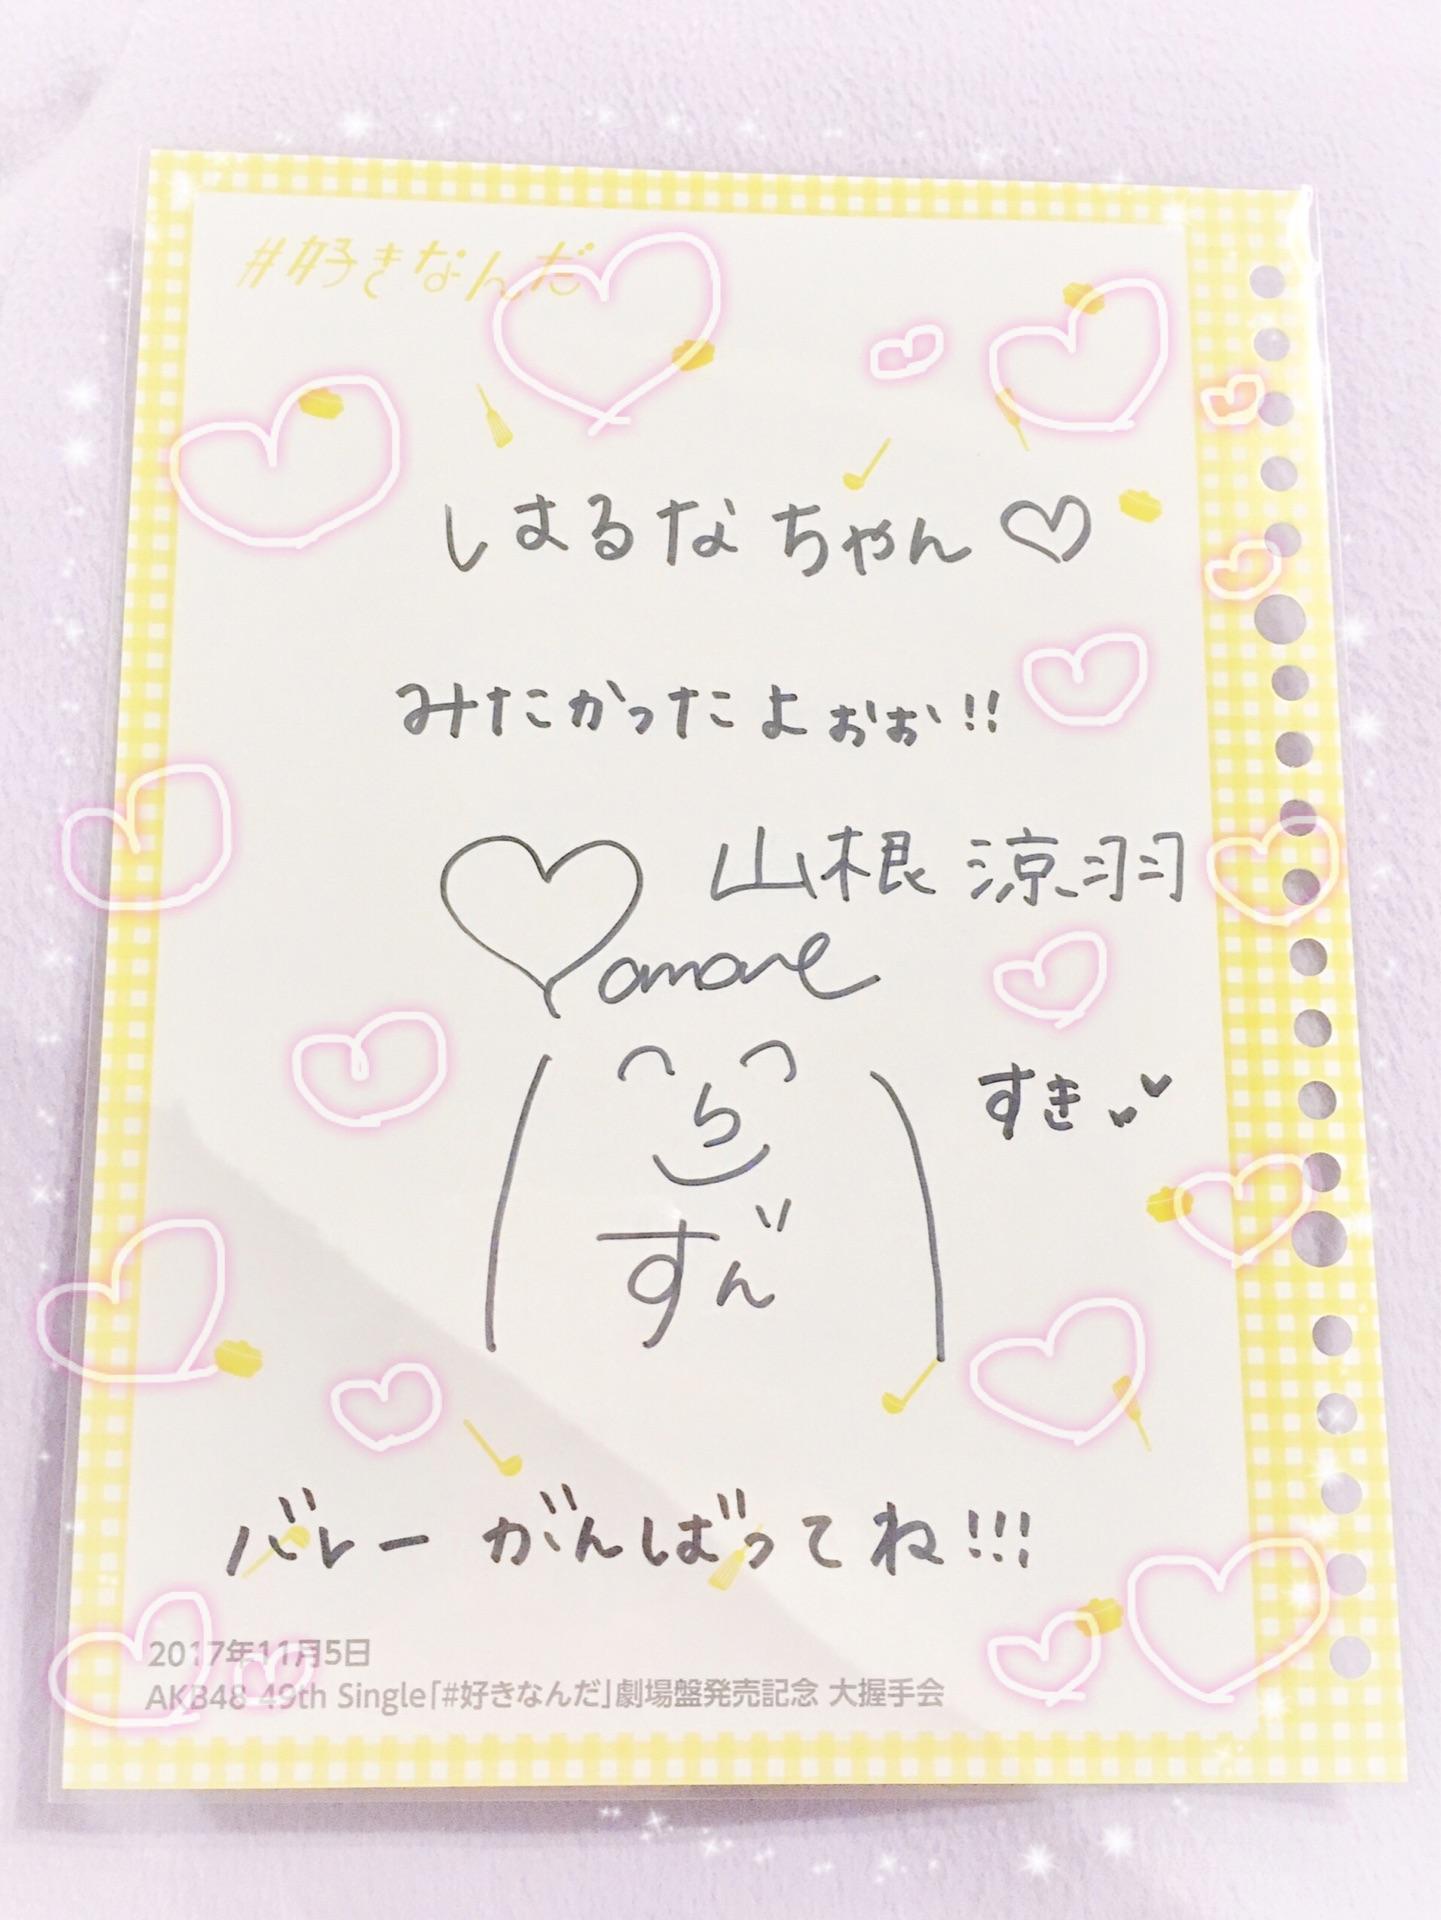 #好きなんだ
はるなちゃん♡
みたかったよぉぉ!!
山根 涼羽
すき
ずん
バレー がんばってね!!!
2017年11月5日
AKB48 49th Single「#好きなんだ」劇場盤発売記念 大握手会